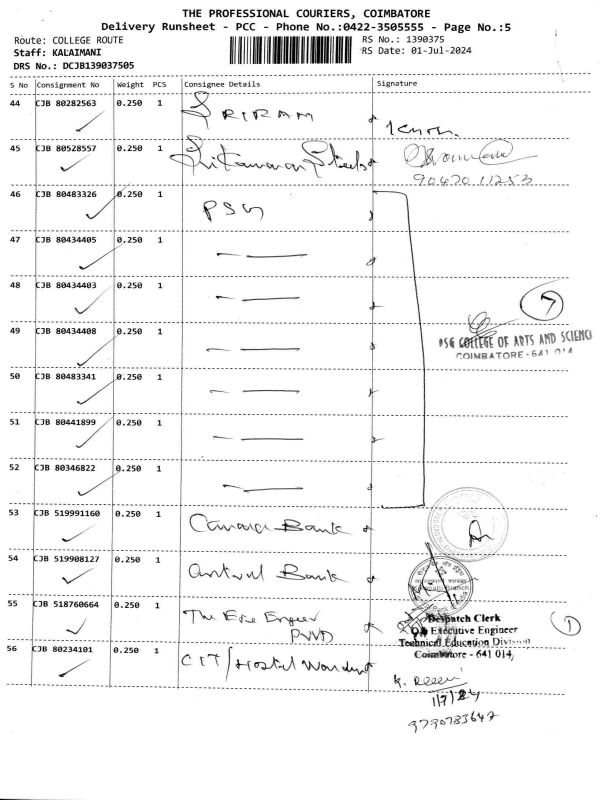 THE PROFESSIONAL COURIERS, COIMBATORE
Delivery Runsheet - PCC - Phone No.:0422-3505555 - Page No.:5
Route: COLLEGE ROUTE RS No.: 1390375
Staff: KALAIMANI RS Date: 01-Jul-2024
DRS No.: DCJB139037505
S No Consignment No Weight PCS Consignee Details Signature
44 CJB 80282563 0.250 1 SRIRAM
45 CJB 80528557 0.250 1 Steels
90470 11253
46 CJB 80483326 0.250 1 PSG
47 CJB 80434405 0.250 1
48 CJB 80434403 0.250 1
7
49 CJB 80434408 0.250 1
PSG COLLEGE OF ARTS AND SCIENC
COIMBATORE-641 014
50 CJB 80483341 0.250 1
51 CJB 80441899 0.250 1
52 CJB 80346822 0.250 1
53 CJB 519991160 0.250 1 Canara Bank
54 CJB 519908127 0.250 1 Bank
55 CJB 518760664 0.250 1 The Exe Engineer
PWD
Despatch Clerk
Executive Engineer
Technical Education Division
Coimbatore - 641 014
1
56 CJB 80234101 0.250 1 CIT/Hostel Warden
1/7/24
9790783642